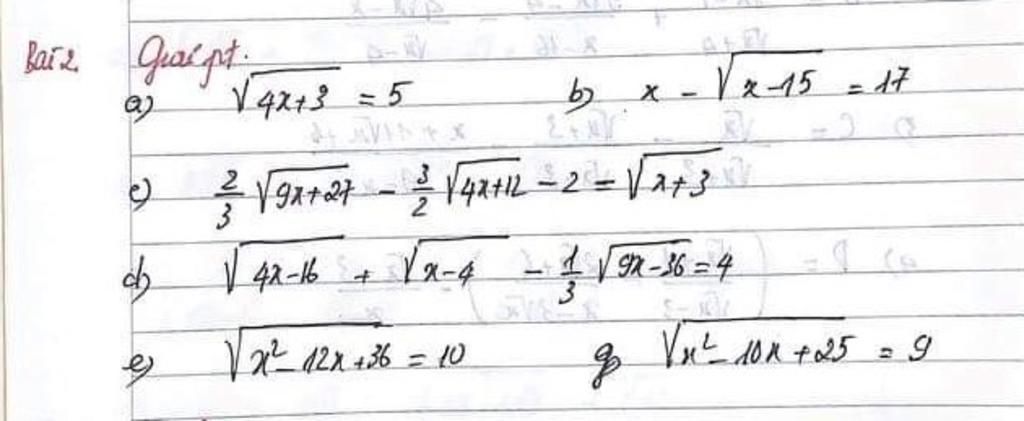 Bài 2. Giải pt.
a) √(4x+3) = 5 b) x - √(x-15) = 17
c) 2/3 √(9x+27) - 3/2 √(4x+12) - 2 = √(x+3)
d) √(4x-16) + √(x-4) - 1/3 √(9x-36) = 4
e) √(x²-12x+36) = 10 g) √(x²-10x+25) = 9